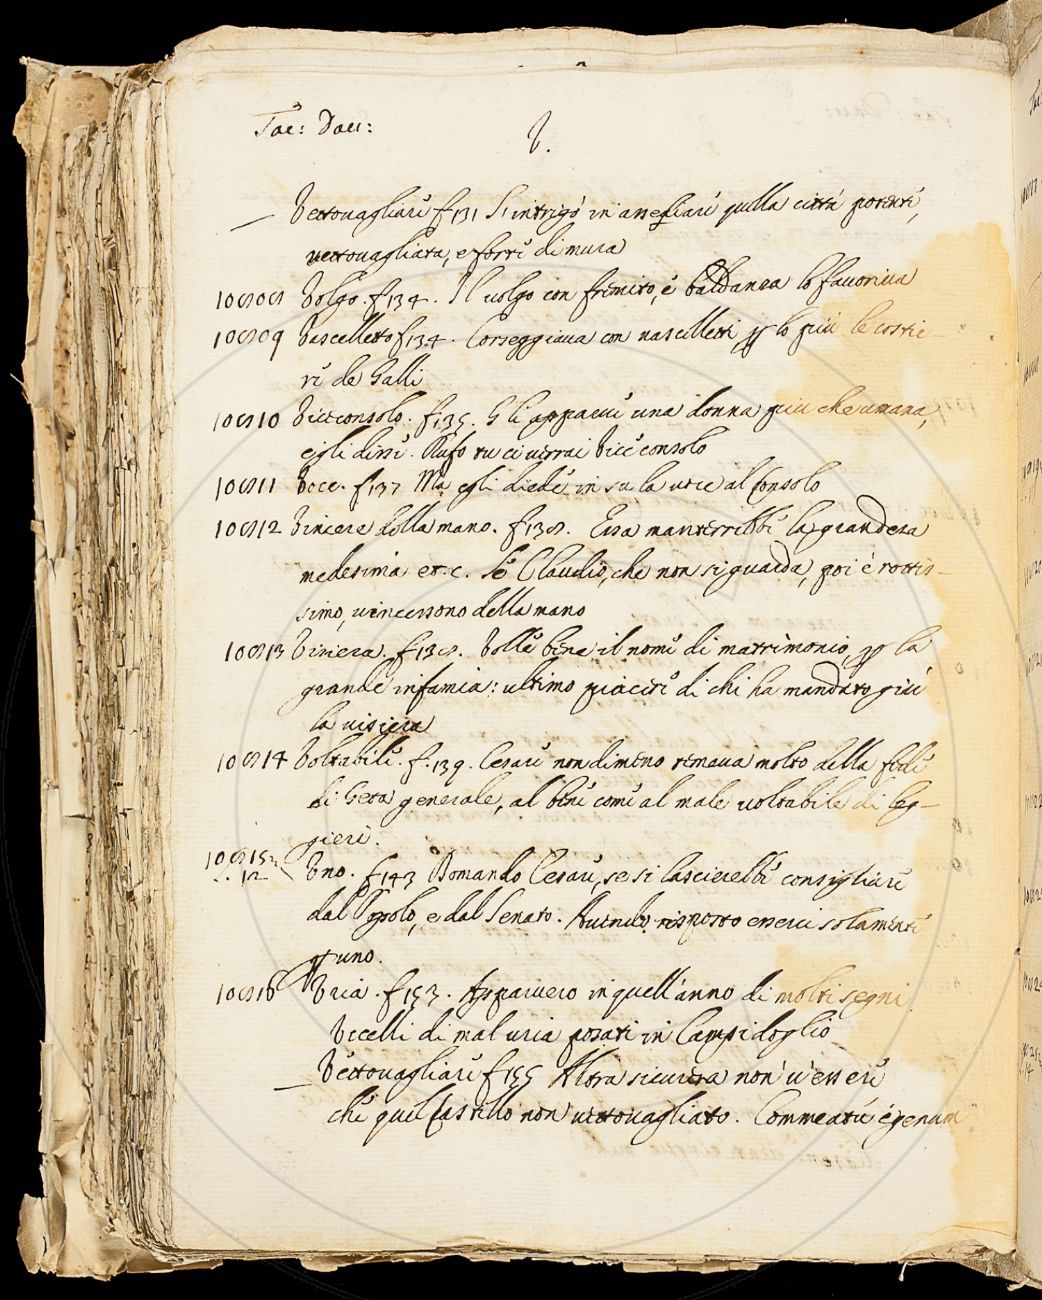 Tac: Dau:
V.
— Vettovagliare f.131 S'intrigò in assediare quella città potente,
vettovagliata, e forte di mura
10808 Volgo. f.134. Il volgo con fremito, e baldanza lo favoriva
10809 Vascelletto f.134. Corseggiava con vascelletti p lo più le costie-
re de Galli
10810 Viceconsolo. f.135. Gli apparve una donna più che umana,
e gli disse. Rufo tu ci verrai Viceconsolo
10811 Voce. f.137 Ma egli diede in su la voce al Consolo
10812 Vincere della mano. f.138. Essa manterrebbe la grandeza
medesima et.c. Se Claudio, che non si guarda, poi è rottis-
simo, vincessono della mano
10813 Visiera. f.138. Volle bene il nome di matrimonio, p la
grande infamia: ultimo piacere di chi ha mandato giù
la visiera
10814 Voltabile. f.139. Cesare nondimeno temeva molto della fede
di Geta generale, al bene come al male voltabile di leg-
gieri.
10815 Uno. f.143 Domandò Cesare, se si lascierebbe consigliare
12
dal Popolo, e dal Senato. Avendo risposto esserci solamente
p uno.
10816 Uria. f.153. Apparvero in quell'anno di molti segni
Uccelli di mal uria posati in Campidoglio
— Vettovagliare f.155 Altra sicureza non v'essere
che quel Castello non vettovagliato. Commeatu egenum